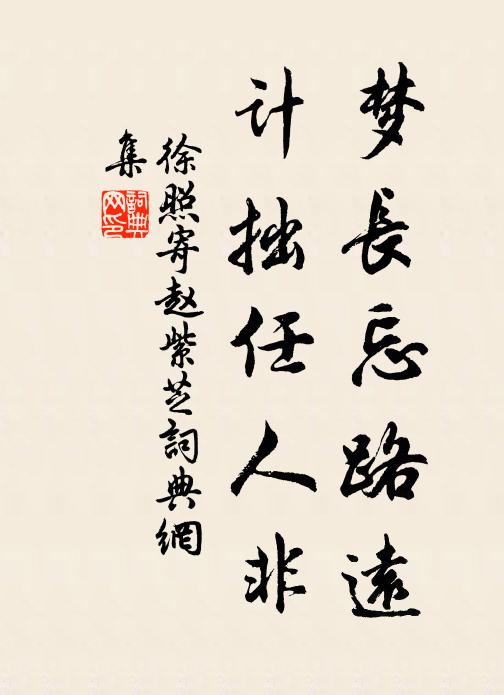 梦長忘路遠
计拙任人非
徐照寄赵紫芝詞典網
集
詞典網印